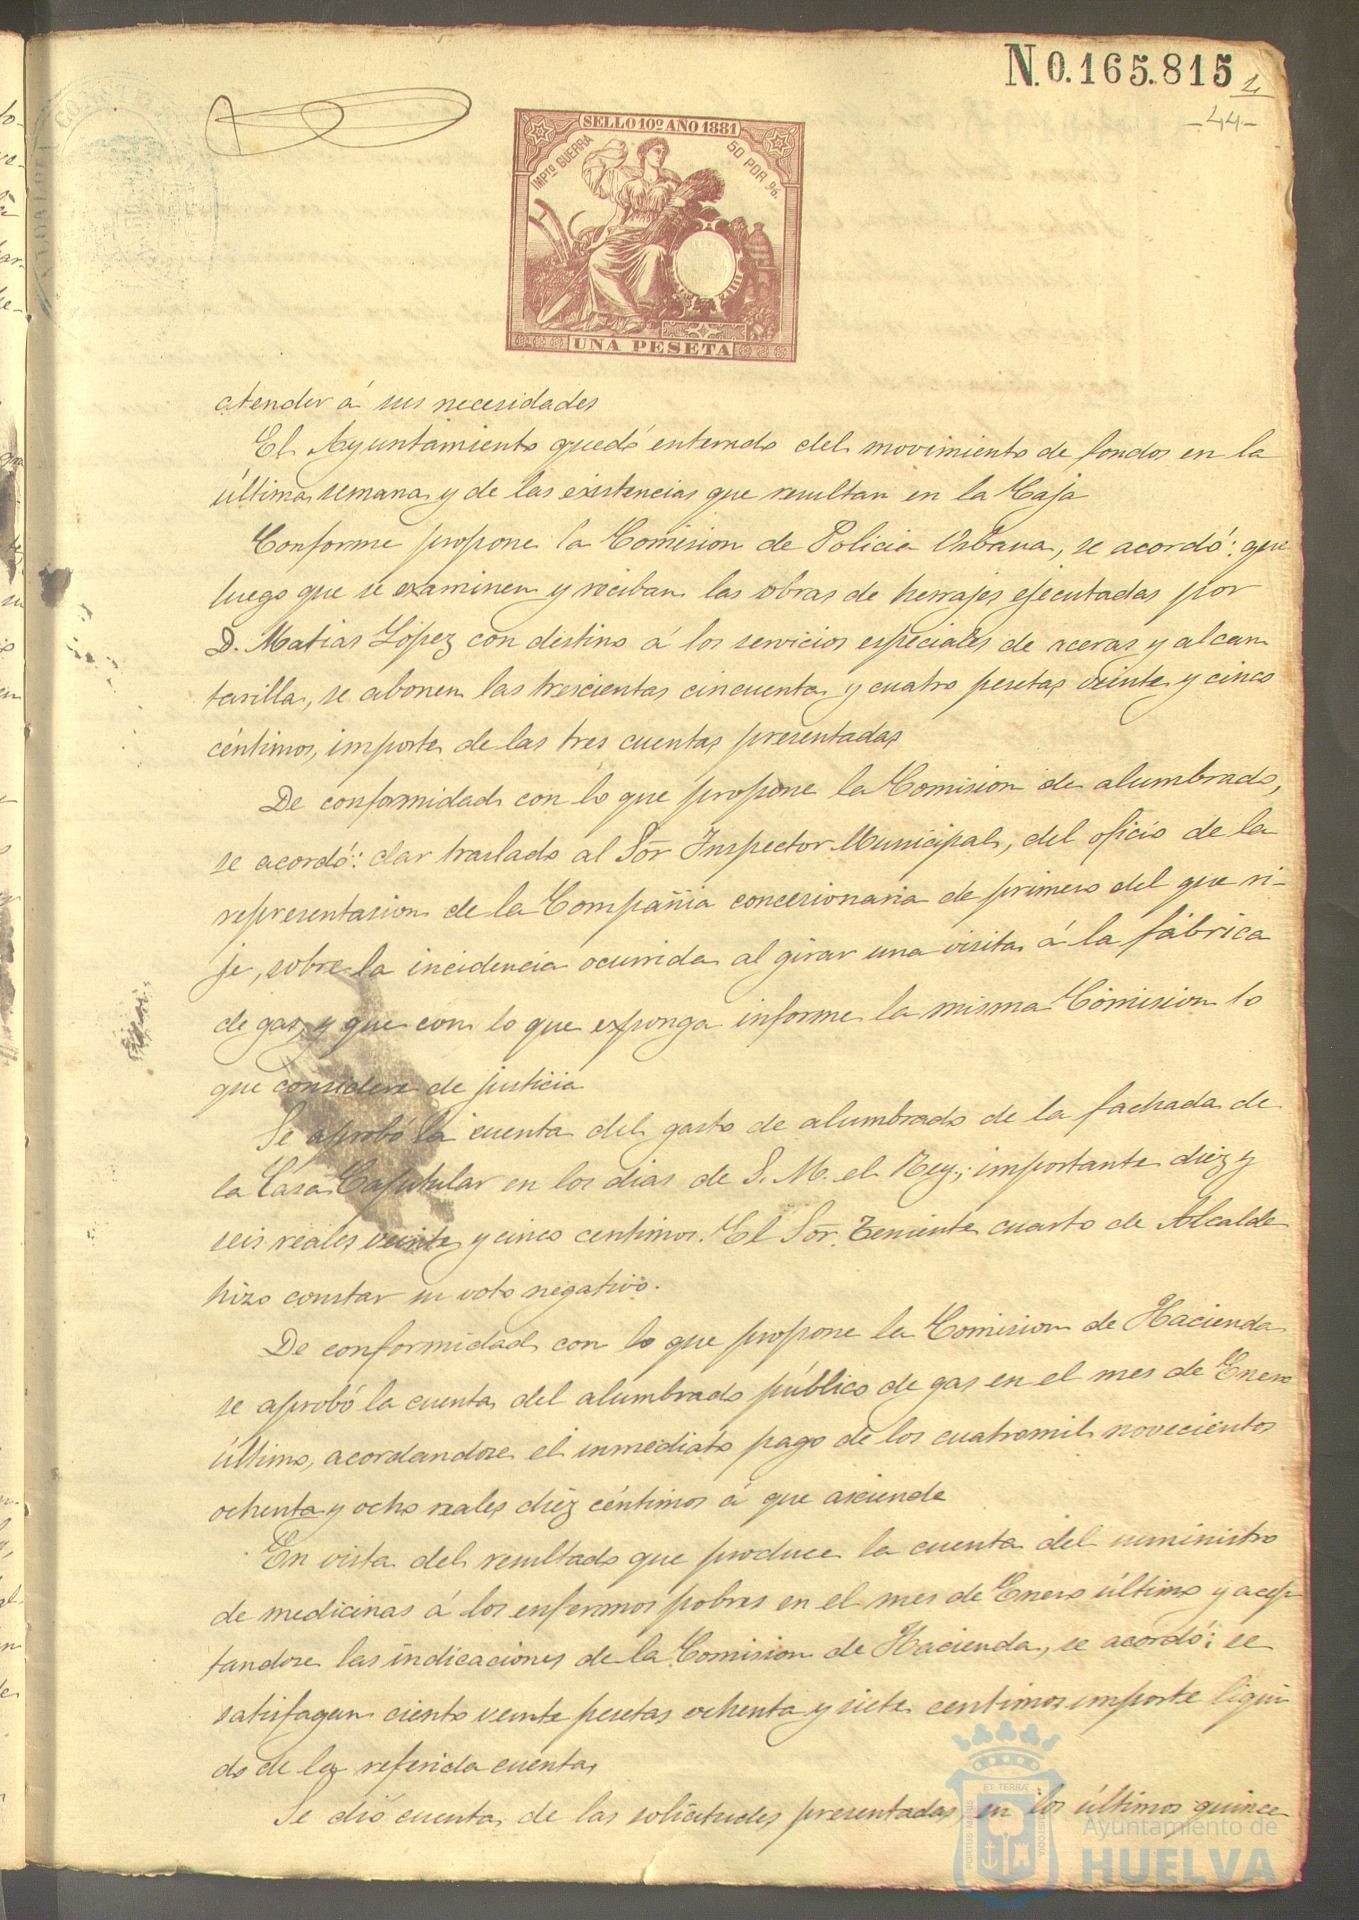 N.0.165.815
-44-
SELLO 10º AÑO 1881
IMPTO GUERRA
50 POR %.
UNA PESETA
atender á sus necesidades
El Ayuntamiento quedó enterado del movimiento de fondos en la
última semana y de las existencias que resultan en la Caja
Conforme propone la Comision de Policia Urbana, se acordó: que
luego que se examinen y reciban las obras de herrajes ejecutadas por
D. Matias López con destino á los servicios especiales de aceras y alcan
tarilla, se abonen las trescientas cincuenta y cuatro pesetas veinte y cinco
céntimos, importe de las tres cuentas presentadas
De conformidad con lo que propone la Comision de alumbrado,
se acordó: dar traslado al Sōr Inspector Municipal, del oficio de la
representacion de la Compañia concesionaria de primero del que ri-
je, sobre la incidencia ocurrida al girar una visita á la fábrica
de gas, y que con lo que exponga informe la misma Comision lo
que considere de justicia
Se aprobó la cuenta del gasto de alumbrado de la fachada de
la Casa Capitular en los dias de S. M. el Rey; importante diez y
seis reales veinte y cinco centimos. El Sōr. Teniente cuarto de Alcalde
hizo constar su voto negativo.
De conformidad con lo que propone la Comision de Hacienda
se aprobó la cuenta del alumbrado público de gas en el mes de Enero
último, acordandose el inmediato pago de los cuatromil novecientos
ochenta y ocho reales diez céntimos á que asciende
En vista del resultado que produce la cuenta del suministro
de medicinas á los enfermos pobres en el mes de Enero último y acep
tandose las indicaciones de la Comision de Hacienda, se acordó: se
satisfagan ciento veinte pesetas ochenta y siete centimos importe liqui
do de la referida cuenta
Se dió cuenta de las solicitudes presentadas en los últimos quince
Ayuntamiento de
HUELVA